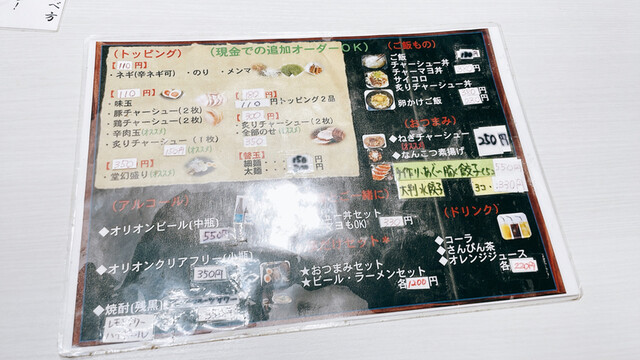 べ方
(トッピング)
(現金での追加オーダーOK)
【110円】
・ネギ(辛ネギ可) ・のり ・メンマ
【110円】
・味玉
・豚チャーシュー(2枚)
・鶏チャーシュー(2枚)
・辛肉玉(オススメ)
・炙りチャーシュー(1枚)
(オススメ)
【350円】
・堂幻盛り(オススメ)
円】
110円トッピング2品
【300円】
・炙りチャーシュー(2枚)
・全部のせ(オススメ)
350
【替玉】
細麺・
円
太麺・
円
(ご飯もの)
ご飯
チャーシュー丼
チャーマヨ丼
サイコロ
炙りチャーシュー丼
卵かけご飯
(おつまみ)
◆ねぎチャーシュー
(オススメ)
250円
◆なんこつ素揚げ
手作り・あぐー豚餃子
大判水餃子 3コ
(アルコール)
◆オリオンビール(中瓶)
550円
◆オリオンクリアフリー(小瓶)
350円
◆焼酎(残黒)
一緒に)
丼セット
もOK)
円
★おつまみセット
★ビール・ラーメンセット
各1200円
(ドリンク)
◆コーラ
◆さんぴん茶
◆オレンジジュース
各220円